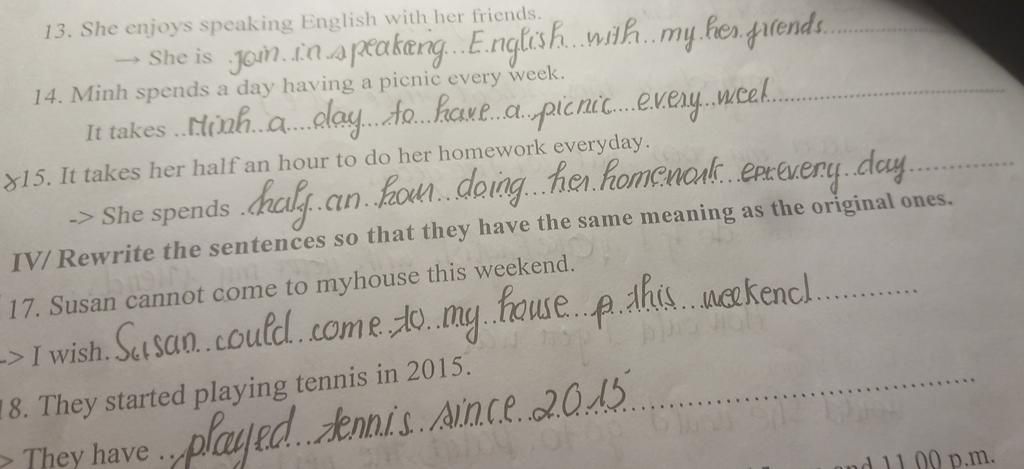 13. She enjoys speaking English with her friends.
→ She is join in speaking English with my her friends
14. Minh spends a day having a picnic every week.
It takes Minh a day to have a picnic every week
15. It takes her half an hour to do her homework everyday.
-> She spends half an hour doing her homework every day
IV/ Rewrite the sentences so that they have the same meaning as the original ones.
17. Susan cannot come to myhouse this weekend.
-> I wish Susan could come to my house this weekend
18. They started playing tennis in 2015.
> They have played tennis since 2015
11 00 p.m.